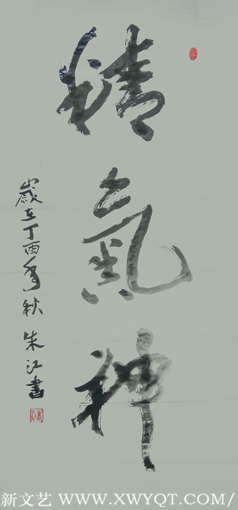 精氣神
歲在丁酉年秋 朱江書
新文艺 / WWW.XWYQT.COM/